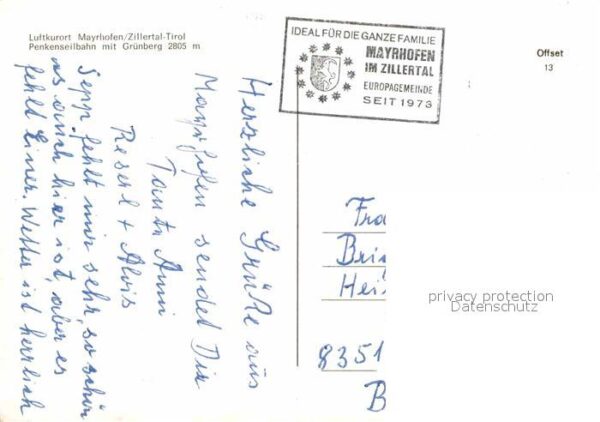 Luftkurort Mayrhofen/Zillertal-Tirol
Penkenseilbahn mit Grünberg 2805 m
IDEAL FÜR DIE GANZE FAMILIE
MAYRHOFEN
IM ZILLERTAL
EUROPAGEMEINDE
SEIT 1973
Offset
13
Herzliche Grüße aus
Mayrhofen sendet Dir
Tante Anni
Reserl + Alois
Sepp fehlt mir sehr, so schön
as auch hier ist, aber es
fehlt Einer. Wetter ist herrlich
Fra
Bri
Hei
8351
B
privacy protection
Datenschutz